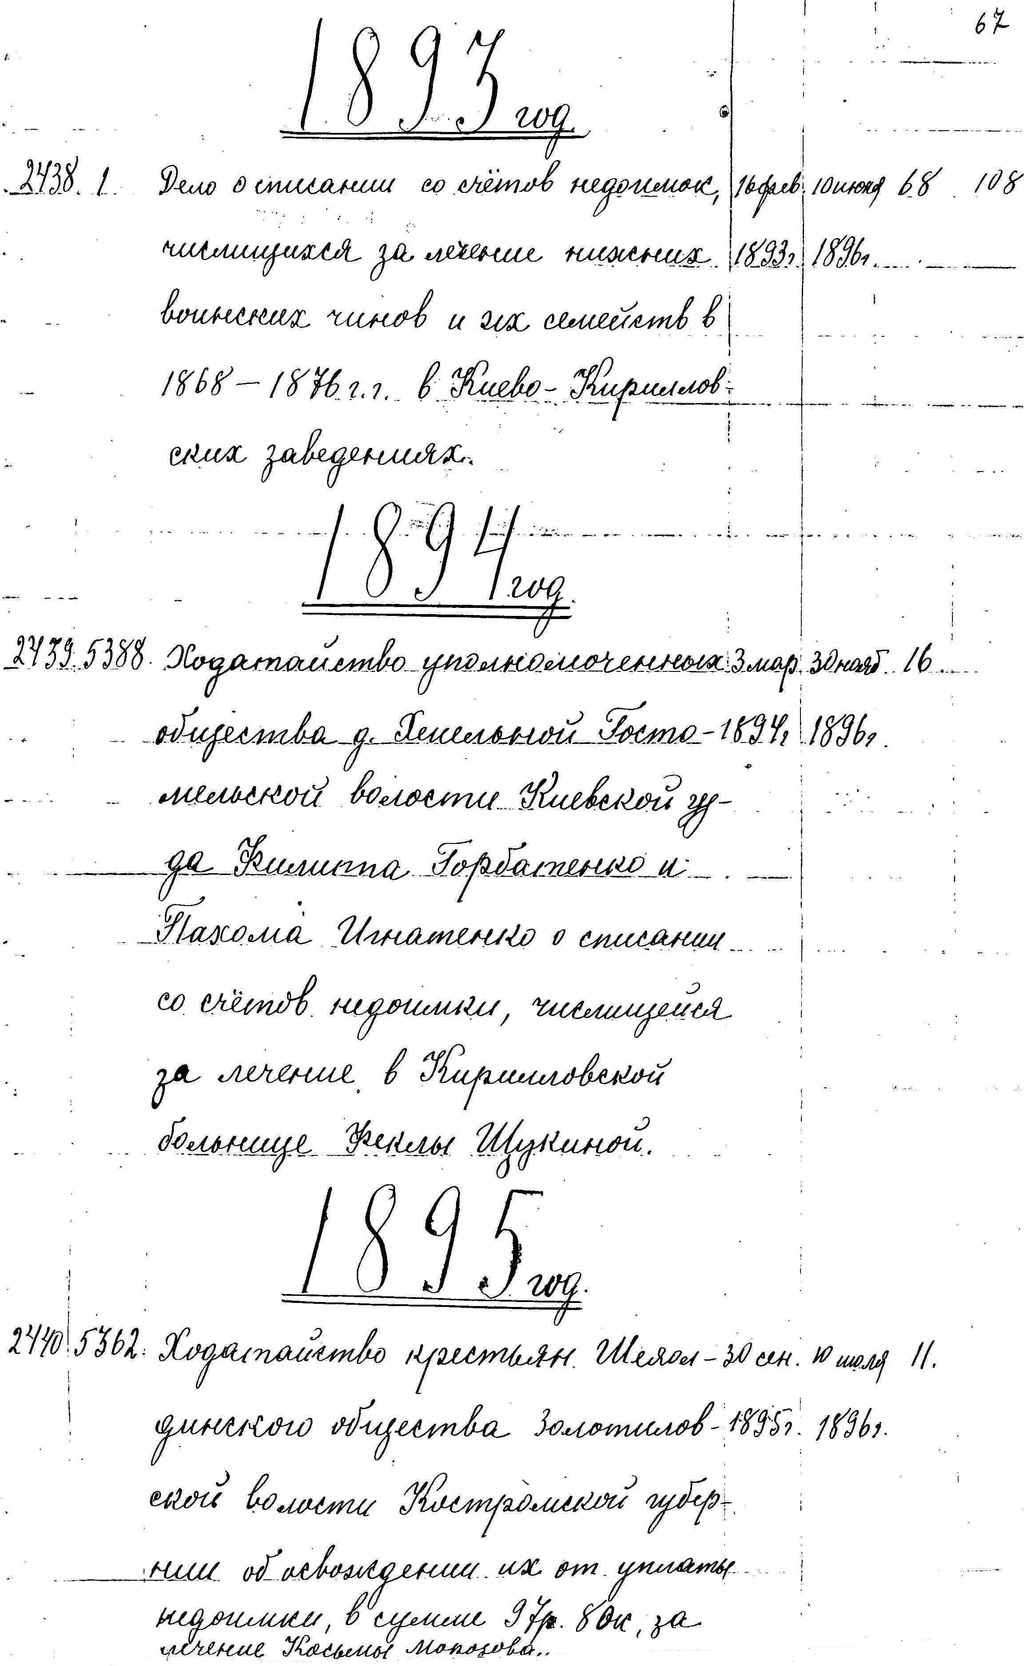 67
1893 год.
2438. 1. Дело о списании со счётов недоимок, 16 фев. 10 июня 68 108
числящихся за лечение нижних 1893г. 1896г.
воинских чинов и их семейств в
1868 – 1876 г.г. в Киево-Кириллов-
ских заведениях.
1894 год.
2439. 5388. Ходатайство уполномоченных 3 мар. 30 нояб. 16
общества д. Хмельной Госто- 1894г. 1896г.
мельской волости Киевской
да Филиппа Горбатенко и
Пахома Игнатенко о списании
со счётов недоимки, числящейся
за лечение в Кирилловской
больнице Феклы Щукиной.
1895 год.
2440 5362. Ходатайство крестьян 30 сен. 10 июля 11.
динского общества Золотилов- 1895г. 1896г.
ской волости Костромской губер-
нии об освождении их от уплаты
недоимки, в сумме 97р. 80к, за
лечение Косьмы Морозова.